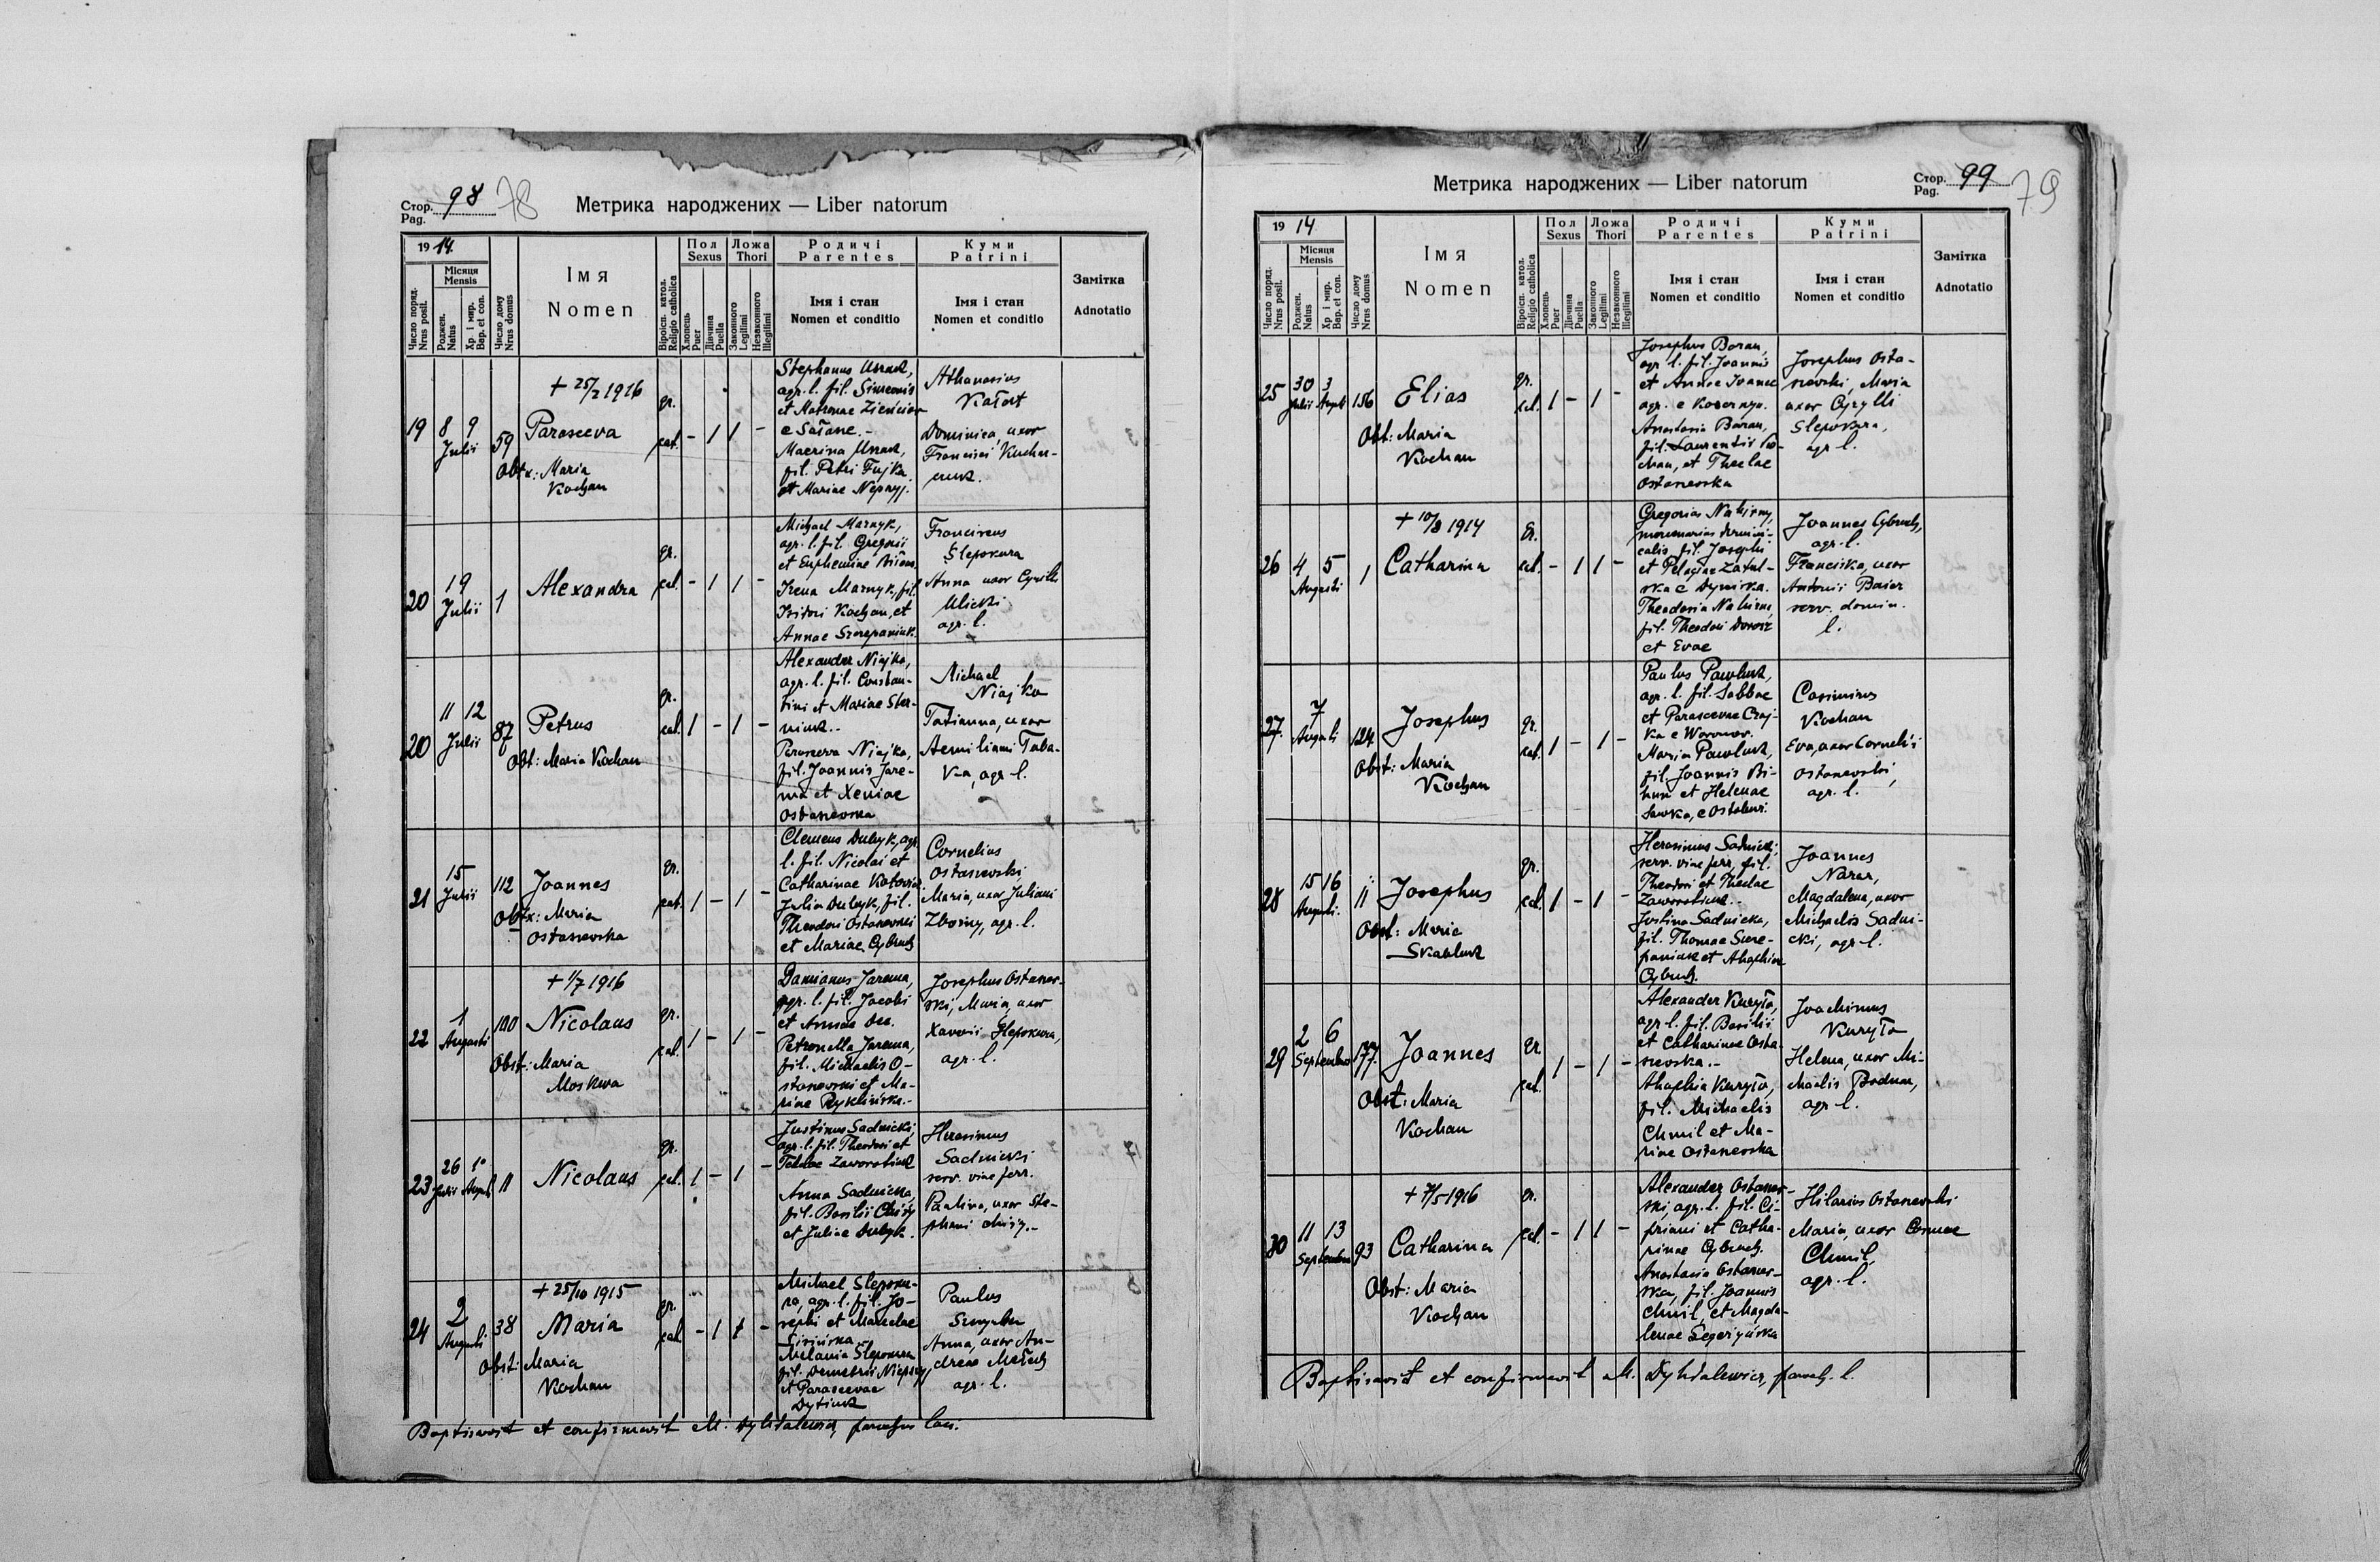 Стор. 98 78
Pag.
Метрика народжених — Liber natorum
1914
Число поряд. Nrus posit.
Місяця Mensis
Рожден. Natus
Хр. і мир. Bap. et con.
Число дому Nrus domus
Імя
Nomen
Віроісп. катол. Religio catholica
Пол Sexus
Хлопець Puer
Дівчина Puella
Ложа Thori
Законного Legitimi
Незаконного Illegitimi
Родичі
Parentes
Імя і стан
Nomen et conditio
Куми
Patrini
Імя і стан
Nomen et conditio
Замітка
Adnotatio
19
8 9
Julii
59
+ 25/2 1916
Parasceva
Obtx: Maria
Kochan
gr.
cat.
- 1 1 -
Stephanus
agr. l. fil. Simeonis
et Matronae
e
Macrina
fil. Petri Fujka
et Mariae
Athanasius
Dominica, uxor
Francisci Kuchar-
20
19
Julii
1
Alexandra
gr.
cat.
- 1 1 -
Michael Marnyk,
agr. l. fil. Gregorii
et Euphemiae
Irena Marnyk, fil.
Isidori Kochan, et
Annae Szczepaniuk
Franciscus
Ślepokura
Anna uxor Cyrilli
Ulicki
agr. l.
20
11 12
Julii
87
Petrus
Obt: Maria Kochan
gr.
cat.
1 - 1 -
Alexander Niajko,
agr. l. fil. Constan-
tini et Mariae
Parasceva Niajko,
fil. Joannis Jare-
ma et Xeniae
Ostaszewska
Michael
Niajko
Tatianna, uxor
Aemiliani
agr. l.
21
15
Julii
112
Joannes
Obtx: Maria
Ostaszewska
gr.
cat.
1 - 1 -
Clemens Dubyk, agr.
l. fil. Nicolai et
Catharinae
Julia Dubyk, fil.
Theodori Ostaszewski
et Mariae Cybuch
Cornelius
Ostaszewski,
Maria, uxor Juliani
Zborny, agr. l.
22
1
Augusti
100
+ 1/7 1916
Nicolaus
Obst: Maria
Moskwa
gr.
cat.
1 - 1 -
Damianus Jarema,
agr. l. fil. Jacobi
et Annae
Petronella Jarema,
fil. Michaelis O-
staszewski et Ma-
riae
Josephus Ostaszew-
ski, Maria, uxor
Xaverii Ślepokura,
agr. l.
23
26 1º
Julii Augusti
11
Nicolaus
gr.
cat.
1 - 1 -
Justinus Sadnicki,
agr. l. fil. Theodori et
Theclae Zaworotiuk
Anna Sadnicka,
fil. Basilii
et Juliae Dubyk.
Herasimus
Sadnicki
serv. viae ferr.
Paulina, uxor Ste-
phani
24
2
Augusti
38
+ 25/10 1915
Maria
Obst: Maria
Kochan
gr.
cat.
- 1 1 -
Michael Slepoku-
ra, agr. l. fil. Jo-
sephi et
Melania Slepokura
fil. Demetrii
et Parascevae
Paulus
Anna, uxor An-
dreae
agr. l.
Baptisavit et confirmavit M. Dyhdalewicz, parochus loci.
Стор. 99 79
Pag.
Метрика народжених — Liber natorum
1914
Число поряд. Nrus posit.
Місяця Mensis
Рожден. Natus
Хр. і мир. Bap. et con.
Число дому Nrus domus
Імя
Nomen
Віроісп. катол. Religio catholica
Пол Sexus
Хлопець Puer
Дівчина Puella
Ложа Thori
Законного Legitimi
Незаконного Illegitimi
Родичі
Parentes
Імя і стан
Nomen et conditio
Куми
Patrini
Імя і стан
Nomen et conditio
Замітка
Adnotatio
25
30 3
Julii Augusti
156
Elias
Obt: Maria
Kochan
gr.
cat.
1 - 1 -
Josephus Baran,
agr. l. fil. Joannis
et Annae
agr. e
Anastasia Baran,
fil. Laurentii Ko-
chan, et Theclae
Ostaszewska
Josephus Osta-
szewski, Maria
uxor Cyrylli
Slepokura,
agr. l.
26
4 5
Augusti
1
+ 10/8 1914
Catharina
gr.
cat.
- 1 1 -
Gregorius Nahirny,
mercenarius domini-
calis, fil. Josephi
et Pelagiae
Theodosia Nahirna,
fil. Theodori
et Evae
Joannes Cybuch,
agr. l.
Franciska, uxor
Antonii
serv. domin.
l.
27.
7
Augusti
124
Josephus
Obst: Maria
Kochan
gr.
cat.
1 - 1 -
Paulus Pawluk,
agr. l. fil. Sabbae
et Parascevae Czaj-
ka e
Maria Pawluk,
fil. Joannis Bi-
hun et Helenae
Sawka, e
Casimirus
Kochan
Eva, uxor Cornelii
Ostaszewski,
agr. l.
28
15 16
Augusti.
11
Josephus
Obst: Maria
gr.
cat.
1 - 1 -
Herasimus Sadnicki,
serv. viae ferr. fil.
Theodori et Theclae
Zaworotiuk.-
Justina Sadnicka,
fil. Thomae Szcze-
paniuk et Ahaphiae
Cybuch.
Joannes
Magdalena, uxor
Michaelis Sadni-
cki, agr. l.
29
2 6
Septembris
177.
Joannes
Obst: Maria
Kochan
gr
cat.
1 - 1 -
Alexander Kuryło,
agr. l. fil. Basilii
et Catharinae Osta-
szewska.-
Ahaphia Kuryło,
fil. Michaelis
Chmil et Ma-
riae Ostaszewska
Joachimus
Kuryło
Helena, uxor Mi-
chaelis Bodnar,
agr. l.
30
11 13
Septembris
93
+ 7/5 1916
Catharina
Obst: Maria
Kochan
gr.
cat.
- 1 1 -
Alexander Ostaszew-
ski, agr. l. fil. Ci-
priani et Catha-
rinae Cybuch.
Anastasia Ostaszew-
ska, fil. Joannis
Chmil, et Magda-
lenae
Hilarius Ostaszewski
Maria, uxor Cosmae
Chmil,
agr. l.
Baptisavit et confirmavit M. Dyhdalewicz, paroch. l.